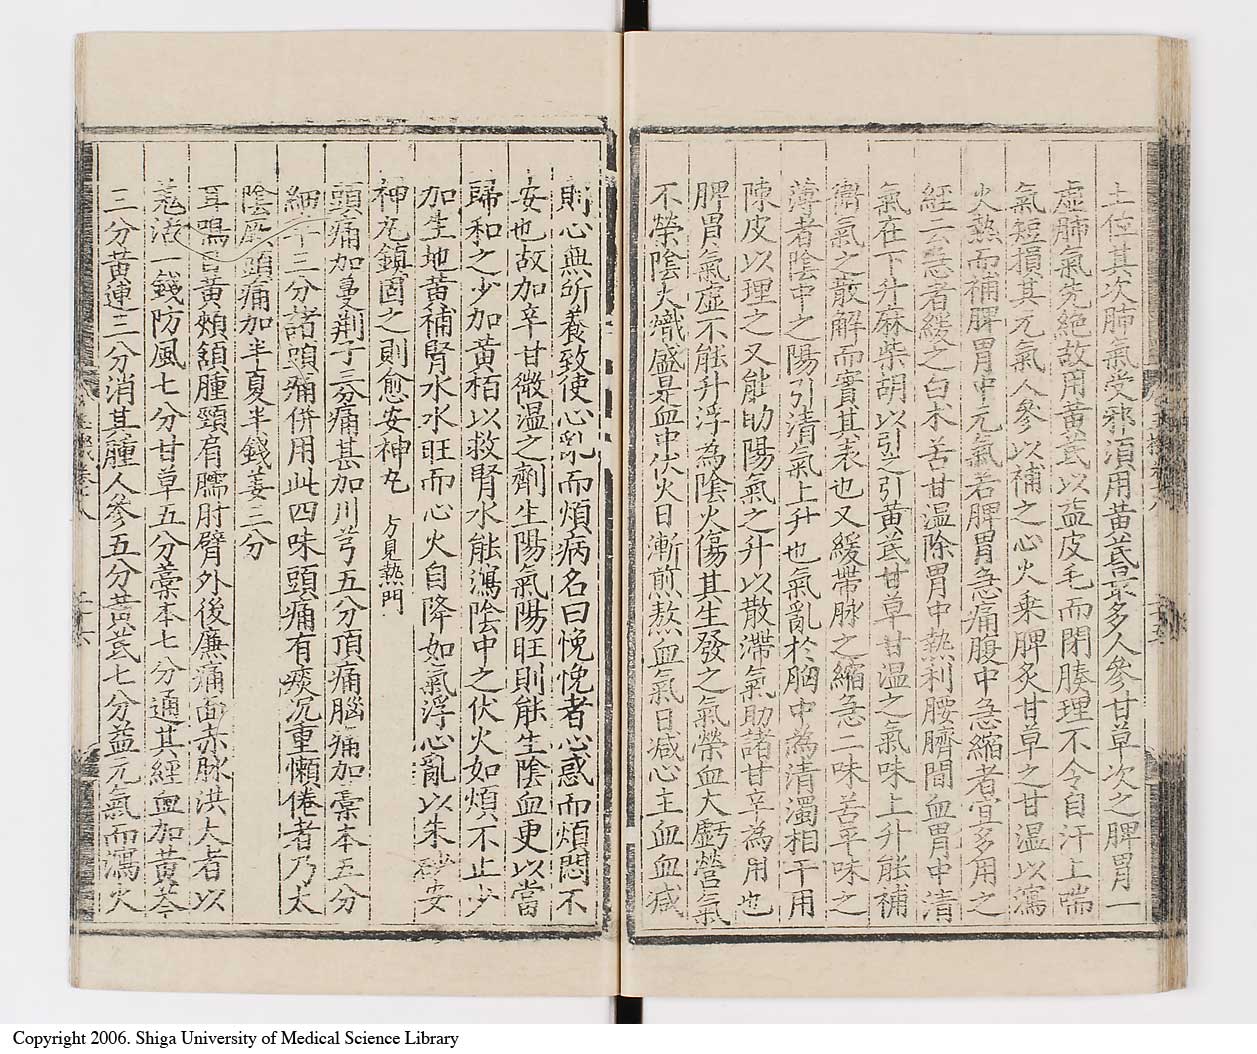 土位其次肺氣受邪須用黃芪最多人參甘草次之脾胃一
虛肺氣先絕故用黃芪以益皮毛而閉腠理不令自汗上喘
氣短損其元氣人參以補之心火乘脾炙甘草之甘温以瀉
火熱而補脾胃中元氣若脾胃急痛腹中急縮者宜多用之
經云急者緩之白朮苦甘温除胃中熱利腰臍間血胃中清
氣在下升麻柴胡以引之引黃芪甘草甘温之氣味上升能補
衛氣之散解而實其表也又緩帶脉之縮急二味苦平味之
薄者陰中之陽引清氣上升也氣亂於胸中為清濁相干用
陳皮以理之又能助陽氣之升以散滯氣助諸甘辛為用也
脾胃氣虛不能升浮為陰火傷其生發之氣榮血大虧營氣
不榮陰火熾盛是血中伏火日漸煎熬血氣日减心主血血减
則心無所養致使心乱而煩病名曰悗悗者心惑而煩悶不
安也故加辛甘微温之劑生陽氣陽旺則能生陰血更以當
歸和之少加黃栢以救腎水能瀉陰中之伏火如煩不止少
加生地黃補腎水水旺而心火自降如氣浮心亂以朱砂安
神丸鎮固之則愈安神丸 方見熱門
頭痛加蔓荆子三分痛甚加川芎五分頂痛腦痛加藁本五分
細辛三分諸頭痛併用此四味頭痛有痰沉重懶倦者乃太
陰厥頭痛加半夏半錢姜三分
耳鳴目黃頰頷腫頸肩臑肘臂外後廉痛面赤脉洪大者以
羗活一錢防風七分甘草五分藁本七分通其經血加黃芩
三分黃連三分消其腫人參五分黃芪七分益元氣而瀉火
Copyright 2006. Shiga University of Medical Science Library